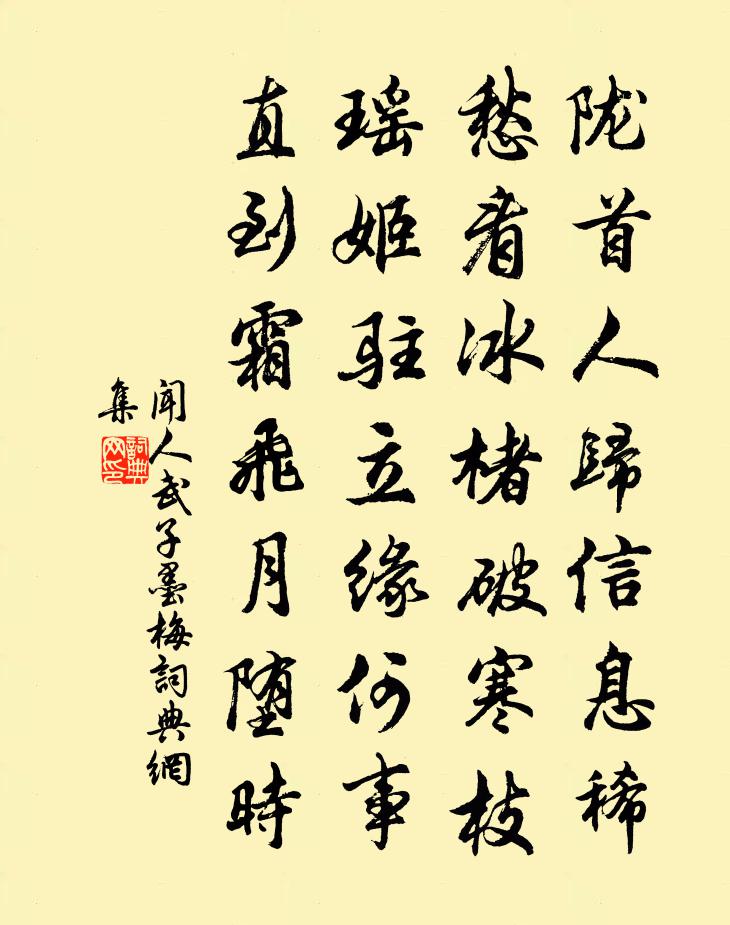 陇首人歸信息稀
愁看冰楮破寒枝
瑶姬駐立緣何事
直到霜飛月堕時
聞人武子墨梅詞典網
集
詞典
网印